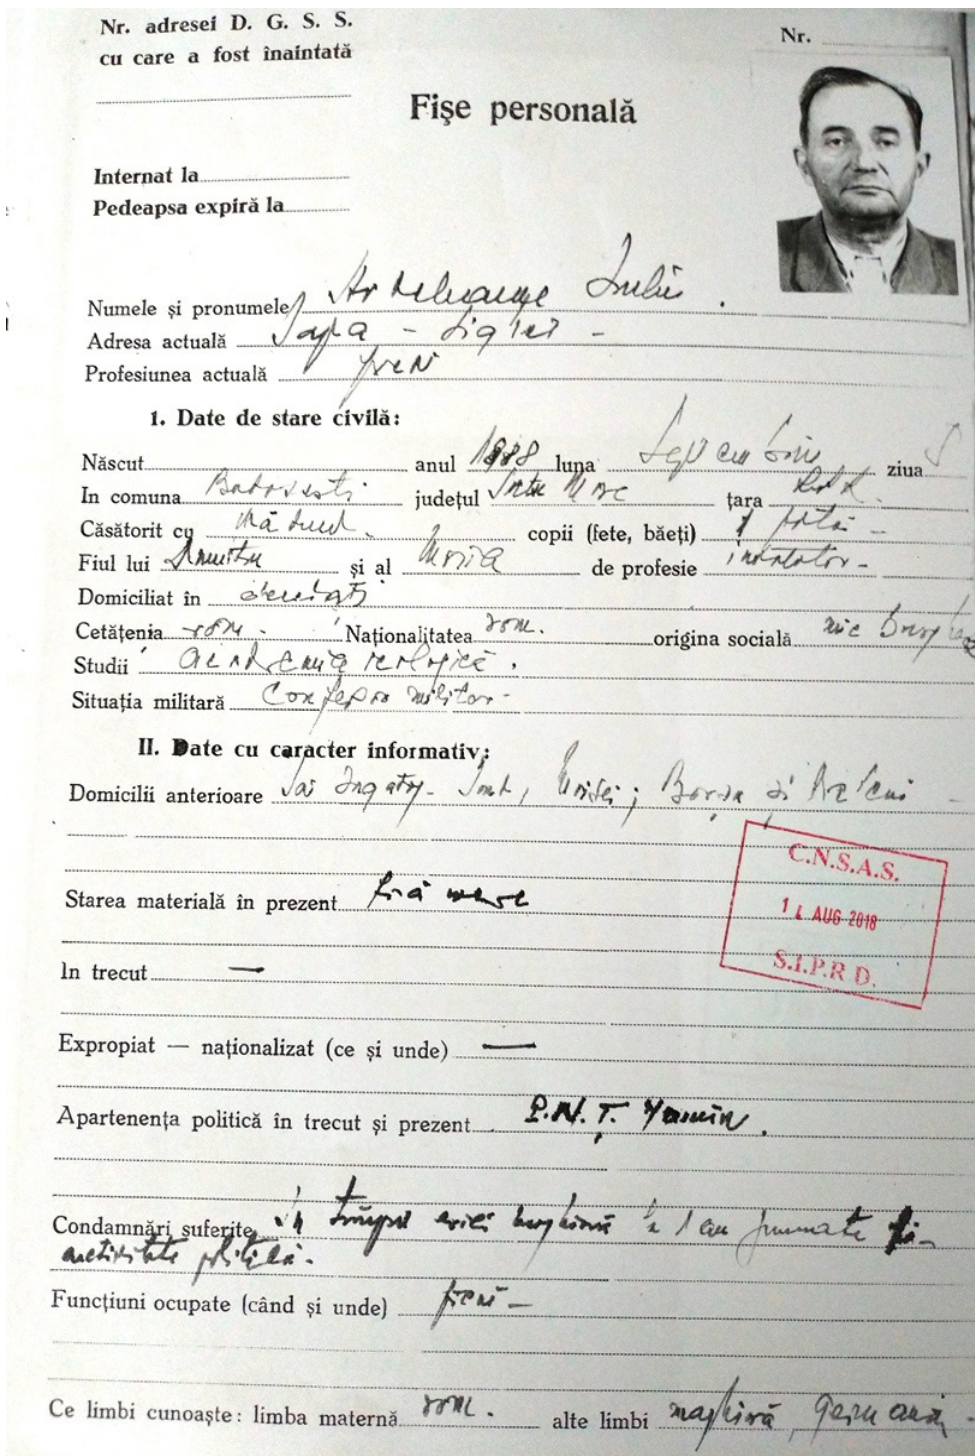 Nr. adresei D. G. S. S.
cu care a fost înaintată
Nr.
Fişe personală
Internat la
Pedeapsa expiră la
Numele şi pronumele Iuliu
Adresa actuală Sapa - Sighet -
Profesiunea actuală preot
I. Date de stare civilă:
Născut anul 1888 luna Septembrie ziua
In comuna judeţul Satu Mare ţara
Căsătorit cu văduv copii (fete, băeţi) 1 fată -
Fiul lui Dumitru şi al Maria de profesie
Domiciliat în decedaţi
Cetăţenia rom. Naţionalitatea rom. origina socială mic burghez
Studii Academia teologică.
Situaţia militară Confesor militar -
II. Date cu caracter informativ:
Domicilii anterioare Moisei; Borşa şi
C.N.S.A.S.
AUG 2018
S.I.P.R D.
Starea materială în prezent fără avere
In trecut —
Expropiat — naţionalizat (ce şi unde) —
Apartenenţa politică în trecut şi prezent P.N.Ţ. Maniu.
Condamnări suferite în timpul maghiară 1 an jumate
activitate politică.
Funcţiuni ocupate (când şi unde) preot -
Ce limbi cunoaşte: limba maternă rom. alte limbi maghiară, germană -